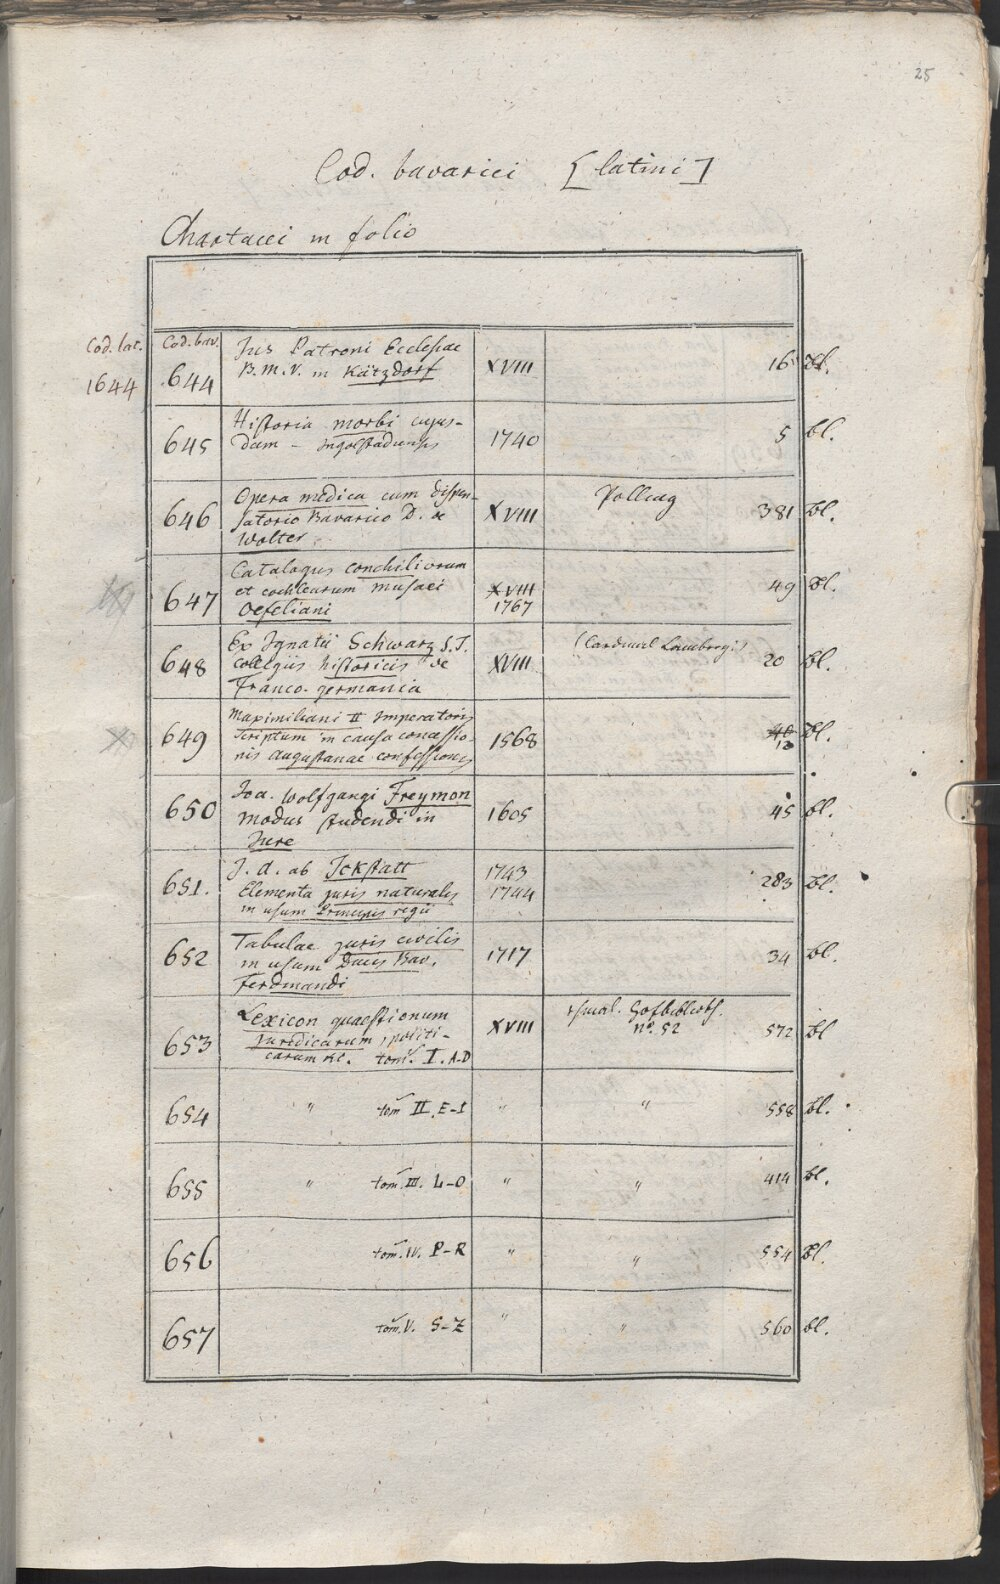 25
Cod. bavarici [latini]
Chartacei in folio
Cod. lat.
1644
Cod. bav.
644
Jus Patroni Ecclesiae
B.M.V. in Kätzdorf
XVIII
16 Bl.
645
Historia morbi cujus-
dam - Ingolstadiensis
1740
5 bl.
646
Opera medica cum dispen-
satorio Bavarico D. de
Wolter
XVIII
Polling
381 Bl.
647
Catalogus conchiliorum
et cochlearum Musaei
Oefeliani
XVIII
1767
49 Bl.
648
Ex Ignatii Schwarz S.J.
collegiis historicis de
Franco-germania
XVIII
(Cardinal Lamberg.)
20 bl.
649
Maximiliani II Imperatoris
scriptum in causa concessio-
nis Augustanae confessionis
1568
12 Bl.
650
Joa. Wolfgangi Freymon
modus studendi in
Jure
1605
45 bl.
651.
J. A. ab Ickstatt
Elementa juris naturalis
in usum Principis regii
1743
1744
283 Bl.
652
Tabulae juris civilis
in usum Ducis Bav.
Ferdinandi
1717
34 bl.
653
Lexicon quaestionum
juridicarum, politi-
carum &c. tom. I. A-D
XVIII
Hofbiblioth.
no. 52
572 bl
654
" tom II. E-I
"
"
558 bl.
655
" tom. III. L-O
"
"
414 bl.
656
tom. IV. P-R
"
"
554 Bl.
657
tom. V. S-Z
"
"
560 bl.